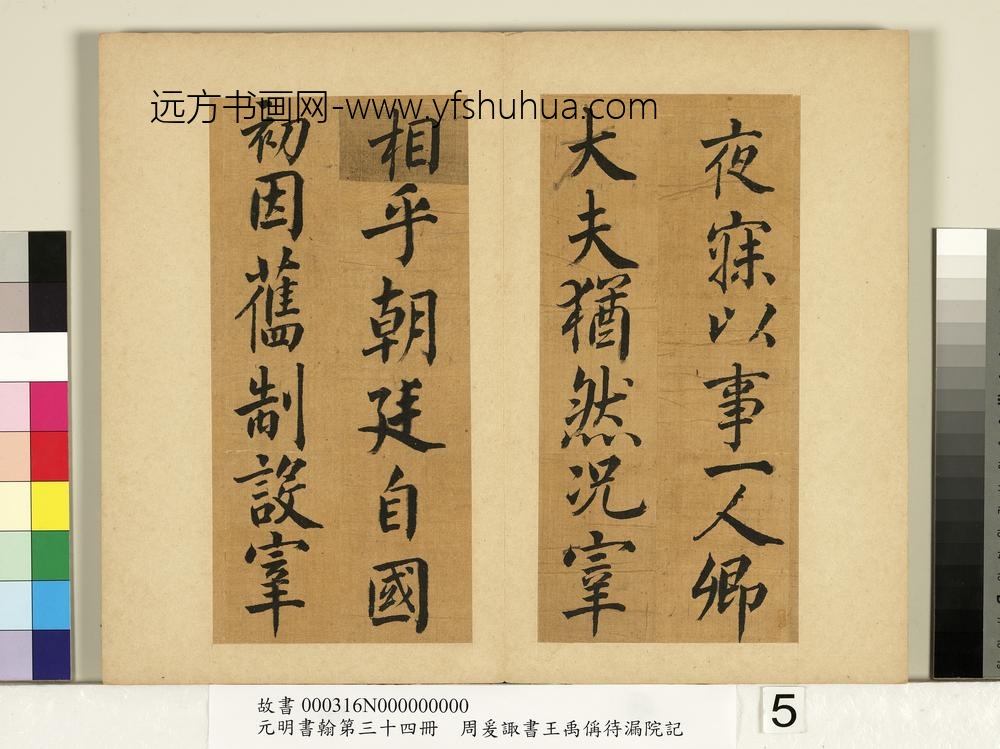 远方书画网-www.yfshuhua.com
夜寐以事一人卿
大夫猶然况宰
相乎朝廷自國
初因舊制設宰
故書 000316N000000000
元明書翰第三十四冊 周爰諏書王禹偁待漏院記
5